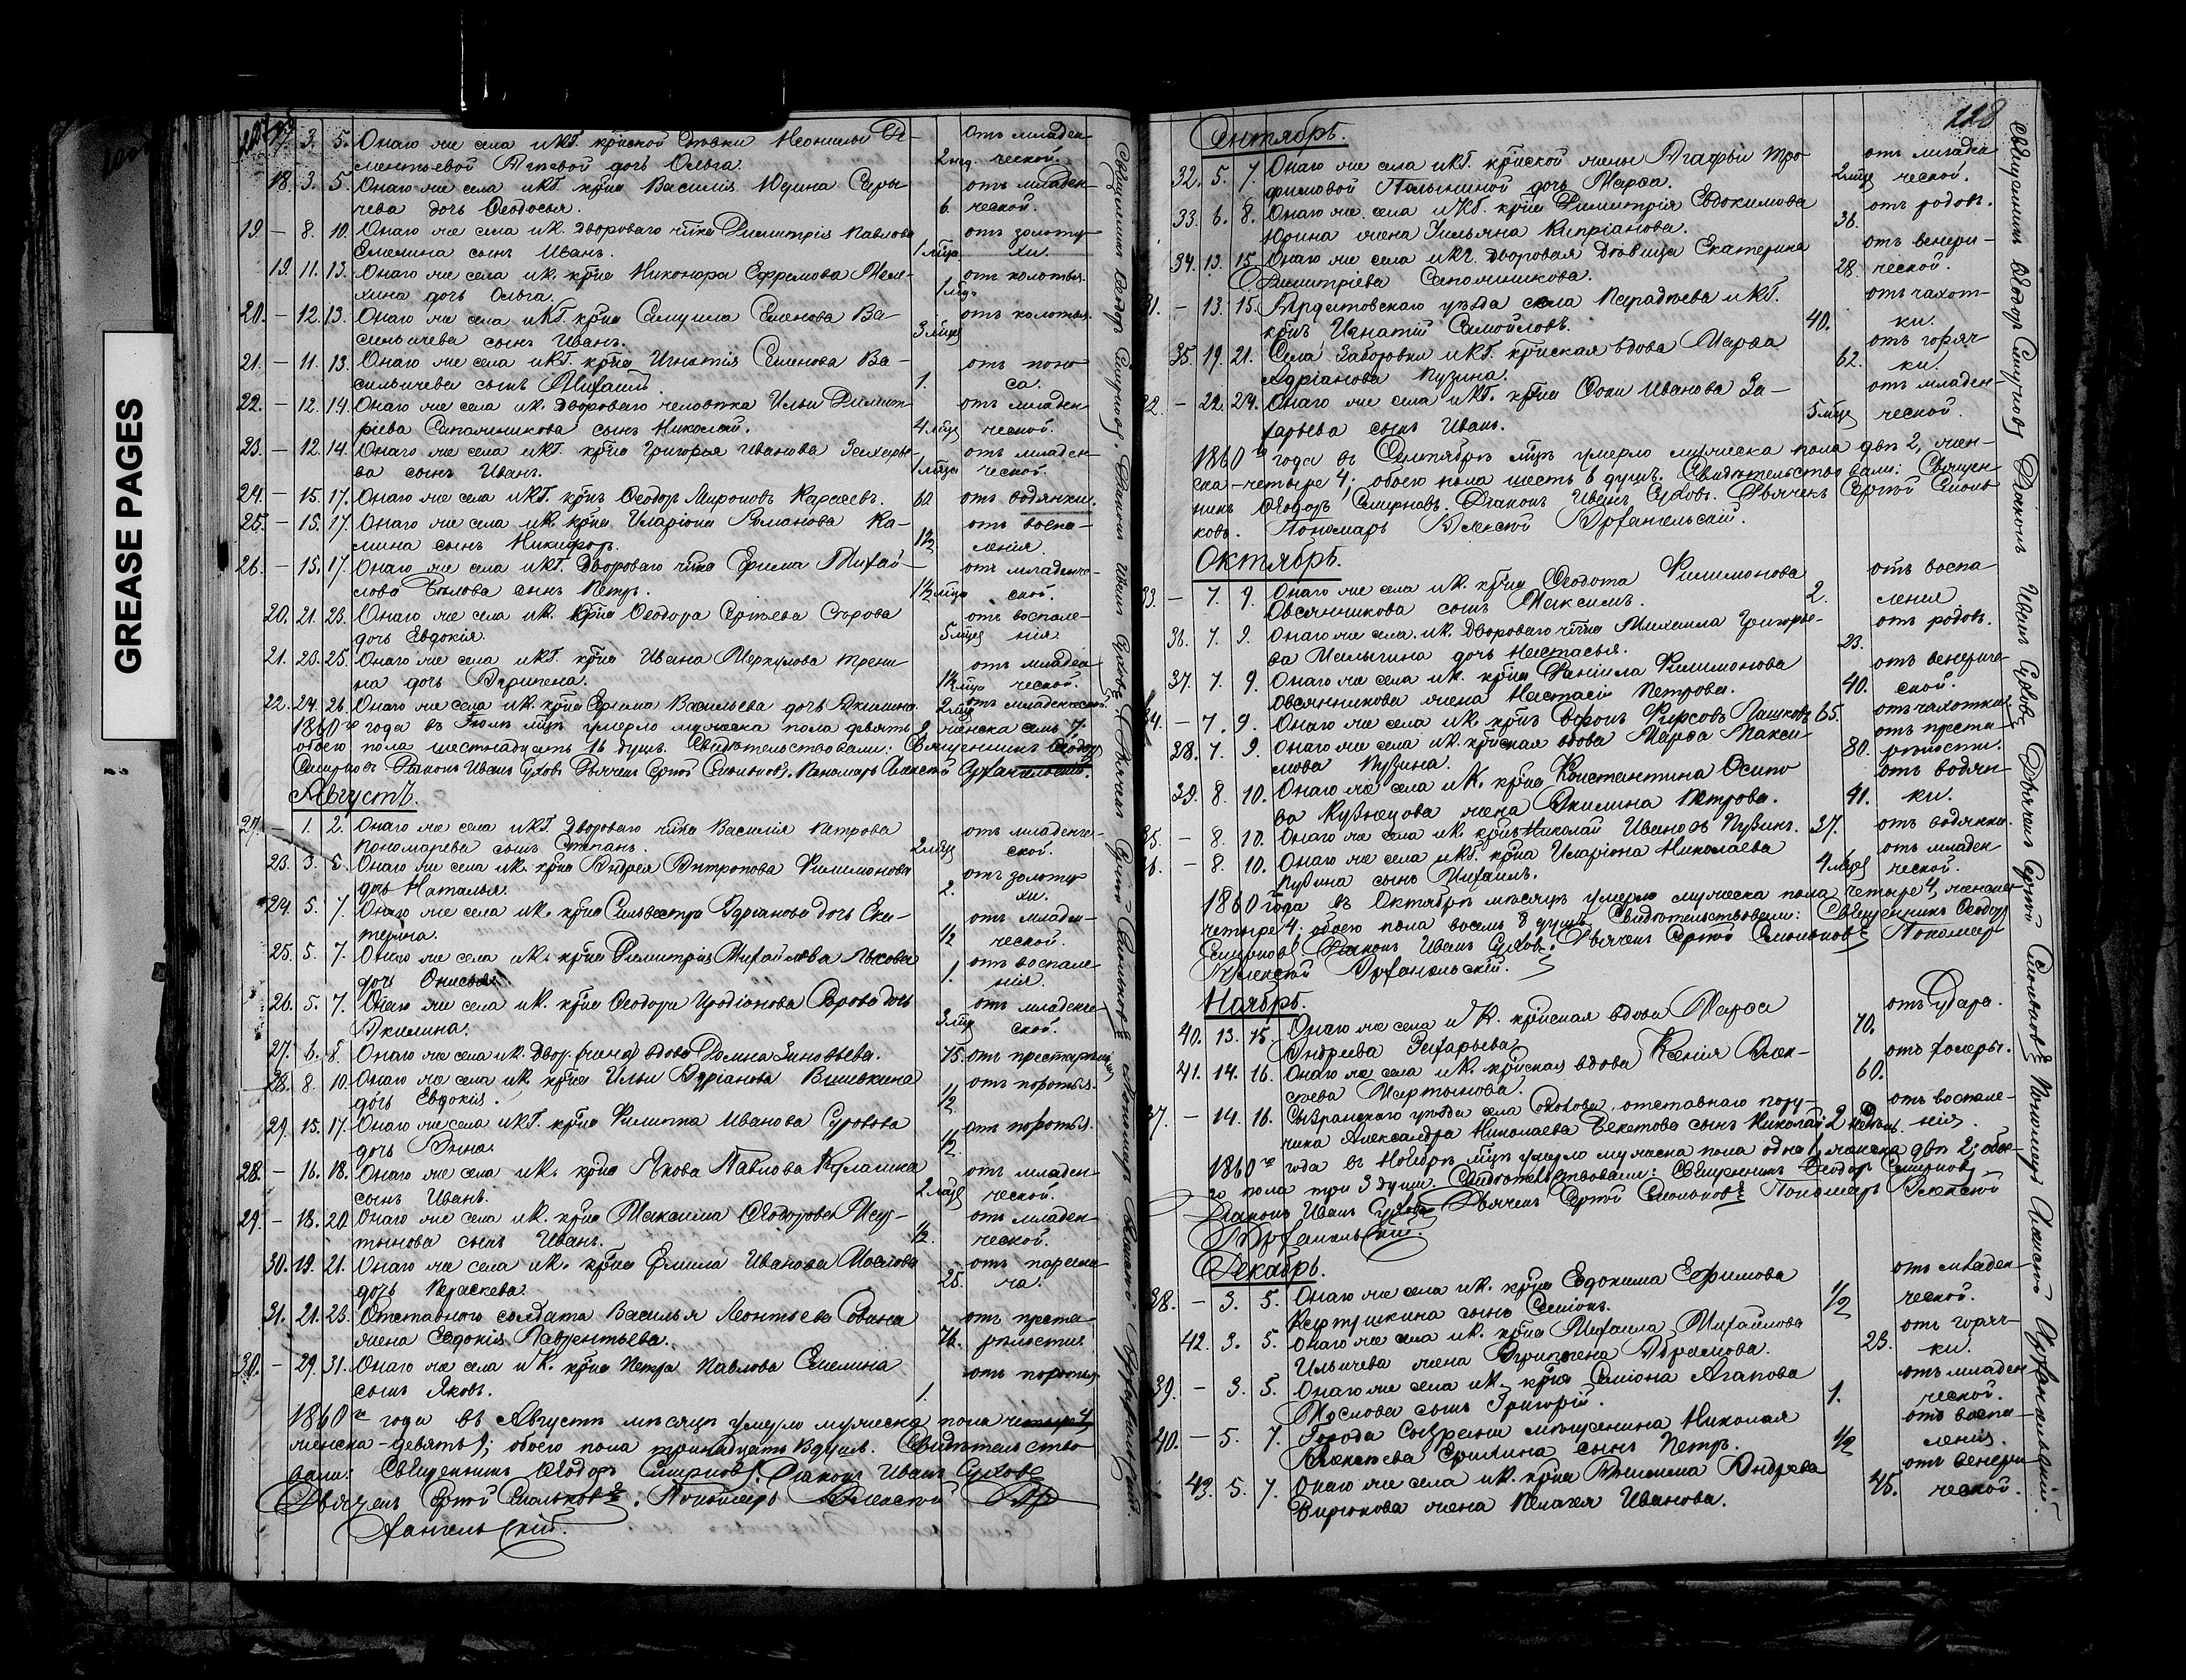 GREASE PAGES
17. 3. 5. Онаго же села
дочь Ольга. 2 нед. отъ младенческой.
18. 3. 5. Онаго же села и кг. крна Василія Юдина Сыры-
чева дочь Ѳеодосья. 6. отъ младенческой.
19. – 8. 10. Онаго же села и к. двороваго члка Димитрія Павлова
Емелина сынъ Иванъ. 1 мца отъ золотухи.
19. 11. 13. Онаго же села и к. крна Никонора Ефремова
дочь Ольга. 1 мца отъ колотья.
20. – 12. 13. Онаго же села и кг. крна Самуила Семенова Ва-
сильичева сынъ Иванъ. 3 мцев отъ колотья.
21. – 11. 13. Онаго же села и кг. крна Игнатія Семенова Ва-
сильичева сынъ Михаилъ. 1. отъ поноса.
22. – 12. 14. Онаго же села и к. двороваго человѣка Ильи Димит-
ріева Сапожникова сынъ Николай. 4 мцев отъ младенческой.
23. – 12. 14. Онаго же села и кг. крна Григорья Иванова Захарье-
ва сынъ Иванъ. 1 мца отъ младенческой.
24. – 15. 17. Онаго же села и кг. крнъ Ѳеодоръ Мироновъ Карасевъ. 60 отъ водянки.
25. – 15. 17. Онаго же села и к. крна Иларіона Романова Ка-
лина сынъ Никифоръ. 1½ отъ воспаленія.
26. – 15. 17. Онаго же села и кг. двороваго члка Ефима Михай-
лова Бѣлова сынъ Петръ. 1½ мца отъ младенческой.
20. 21. 23. Онаго же села и к. крна Ѳеодора Сергѣева Сѣрова
дочь Евдокія. 5 мцев отъ воспаленія.
21. 23. 25. Онаго же села и кг. крна Ивана Меркулова Трени-
на дочь Агрипена. 1½ мца отъ младенческой.
22. 24. 26. Онаго же села и к. крна Ефима Васильева дочь Акилина. 2 мцев отъ младенческой.
1860го года въ Іюлѣ мцѣ умерло мужеска пола девять 9, женска семь 7.
обоего пола шестнадцать 16 душъ. Свидѣтельствовали: Священникъ Ѳеодоръ
Смирновъ Діаконъ Иванъ Суховъ Дьячекъ Сергѣй Смольковъ. Пономарь Алексѣй Архангельскій.
Августъ.
27. – 1. 2. Онаго же села и кг. двороваго члка Василія Петрова
Пономарева сынъ Степанъ. 2 мцев отъ младенческой.
23. 3. 5. Онаго же села и к. крна Андрея Антропова Филимонова
дочь Наталья. 2. отъ золотухи.
24. 5. 7. Онаго же села и к. крна Сильвестра Адріанова дочь Ека-
терина. ½ отъ младенческой.
25. 5. 7. Онаго же села и к. крна Димитрія Михайлова Лькова
дочь Онисья. 1. отъ воспаленія.
26. 5. 7. Онаго же села и к. крна Ѳеодора Иродіонова Сѣрова дочь
Акилина. 3 мцев отъ младенческой.
27. 6. 8. Онаго же села и к. двор. вдова Домна Зиновьева. 75. отъ престарѣлости.
28. 8. 10. Онаго же села и к. крна Ильи Адріанова Вшивкина
дочь Евдокія. ½ отъ поротья.
29. 15. 17. Онаго же села и кг. крна Филиппа Иванова Суровова
дочь Анна. ½ отъ поротья.
28. – 16. 18. Онаго же села и к. крна Якова Павлова
сынъ Иванъ. 2 мцев отъ младенческой.
29. – 18. 20. Онаго же села и к. крна Максима Ѳеодорова
сынъ Иванъ. ½. отъ младенческой.
30. 19. 21. Онаго же села и к. крна Иванова
дочь Параскева. 25. отъ паралича.
31. 21. 23. Отставнаго солдата Василья Леонтьева
жена Евдокія Лаврентьева. 76. отъ престарѣлости.
30. – 29. 31. Онаго же села и к. крна Петра Павлова Емелина
сынъ Яковъ. 1. отъ поротья.
1860го года въ Августѣ мѣсяцѣ умерло мужеска пола четыре 4,
женска – девять 9; обоего пола тринадцать 13 душъ. Свидѣтельство-
вали: Священникъ Ѳеодоръ Смирновъ. Діаконъ Иванъ Суховъ
Дьячекъ Сергѣй Смольковъ. Пономарь Алексѣй Ар-
хангельскій.
Священникъ Ѳеодоръ Смирновъ. Діаконъ Иванъ Суховъ Дьячекъ Сергѣй Смольковъ Пономарь Алексѣй Архангельскій.
118
Сентябрь.
32. 5. 7. Онаго же села и кг. крнской жены Агафьи Тро-
фимовой дочь Марѳа. 2 мцев отъ младенческой.
33. 6. 8. Онаго же села и кг. крна Димитрія Евдокимова
Юрина жена Ульяна Кипріанова. 36. отъ родовъ.
34. 13. 15. Онаго же села и кг. дворовая дѣвица Екатерина
Димитріева Сапожникова. 28. отъ венерической.
31. – 13. 15. Ардатовскаго уѣзда села Парадѣева и кг.
крнъ Игнатій Самойловъ. 40. отъ чахотки.
35. 19. 21. Села Заборовки и кг. крнская вдова Марѳа
Адріанова Пузина. 62. отъ горячки.
32. – 22. 24. Онаго же села и кг. крна Ѳоки Иванова За-
харьева сынъ Иванъ. 5 мцев отъ младенческой.
1860го года въ Сентябрѣ мцѣ умерло мужеска пола два 2, жен-
ска – четыре 4; обоего пола шесть 6 душъ. Свидѣтельствовали: Священ-
никъ Ѳеодоръ Смирновъ. Діаконъ Иванъ Суховъ. Дьячекъ Сергѣй Смоль-
ковъ. Пономарь Алексѣй Архангельскій.
Октябрь.
33. – 7. 9. Онаго же села и к. крна Ѳеодота Филимонова
Овсянникова сынъ Максимъ. 2. отъ воспаленія
36. 7. 9. Онаго же села и к. двороваго члка Михаила Григорье-
ва Малыгина дочь Настасья. 23. отъ родовъ.
37. 7. 9. Онаго же села и к. крна Даніила Филимонова
Овсянникова жена Настасія Петрова. 40. отъ венерической.
34. – 7. 9. Онаго же села и к. крнъ Фирсовъ Лашковъ 65. отъ чахотки.
38. 7. 9. Онаго же села и к. крнская вдова Марѳа Макси-
мова Пузина. 80. отъ престарѣлости.
39. 8. 10. Онаго же села и к. крна Константина Осипо-
ва Кузнецова жена Акилина Петрова. 41. отъ водянки.
35. – 8. 10. Онаго же села и к. крнъ Николай Ивановъ Пузинъ. 37. отъ водянки.
36. – 8. 10. Онаго же села и кг. крна Иларіона Николаева
Пузина сынъ Михаилъ. 4 мцев отъ младенческой.
1860 года въ Октябрѣ мѣсяцѣ умерло мужеска пола четыре 4, женска
четыре 4; обоего пола восемь 8 душъ. Свидѣтельствовали: Священникъ Ѳеодоръ
Смирновъ Діаконъ Иванъ Суховъ. Дьячекъ Сергѣй Смольковъ Пономарь
Алексѣй Архангельскій.
Ноябрь.
40. 13. 15. Онаго же села и к. крнская вдова Марѳа
Андреева Захарьева. 70. отъ удара.
41. 14. 16. Онаго же села и к. крнская вдова Ксенія Алек-
сѣева Мартынова. 60. отъ холеры.
37. – 14. 16. Сызранскаго уѣзда села отставнаго пору-
чика Александра Николаева Бекетова сынъ Николай 2 отъ воспаленія.
1860го года въ Ноябрѣ мцѣ умерло мужеска пола одинъ 1, женска двѣ 2; обое-
го пола три 3 души. Свидѣтельствовали: Священникъ Ѳеодоръ Смирновъ
Діаконъ Иванъ Суховъ Дьячекъ Сергѣй Смольковъ Пономарь Алексѣй
Архангельскій.
Декабрь.
38. – 3. 5. Онаго же села и к. крна Евдокима Ефимова
сынъ Симіонъ. ½ отъ младенческой.
42. 3. 5. Онаго же села и к. крна Михаила Михайлова
Ильичева жена Агрипена Абрамова. 23. отъ горячки.
39. – 3. 5. Онаго же села и к. крна Симіона Агапова
Маслова сынъ Григорій. 1. отъ младенческой.
40. – 5. 7. Города Сызрани мѣщанина Николая
Алексѣева сынъ Петръ. ½ отъ воспаленія.
43. 5. 7. Онаго же села и к. крна Андрева
Бирюкова жена Пелагея Иванова. 45. отъ венерической.
Священникъ Ѳеодоръ Смирновъ Діаконъ Иванъ Суховъ Дьячекъ Сергѣй Смольковъ Пономарь Алексѣй Архангельскій.